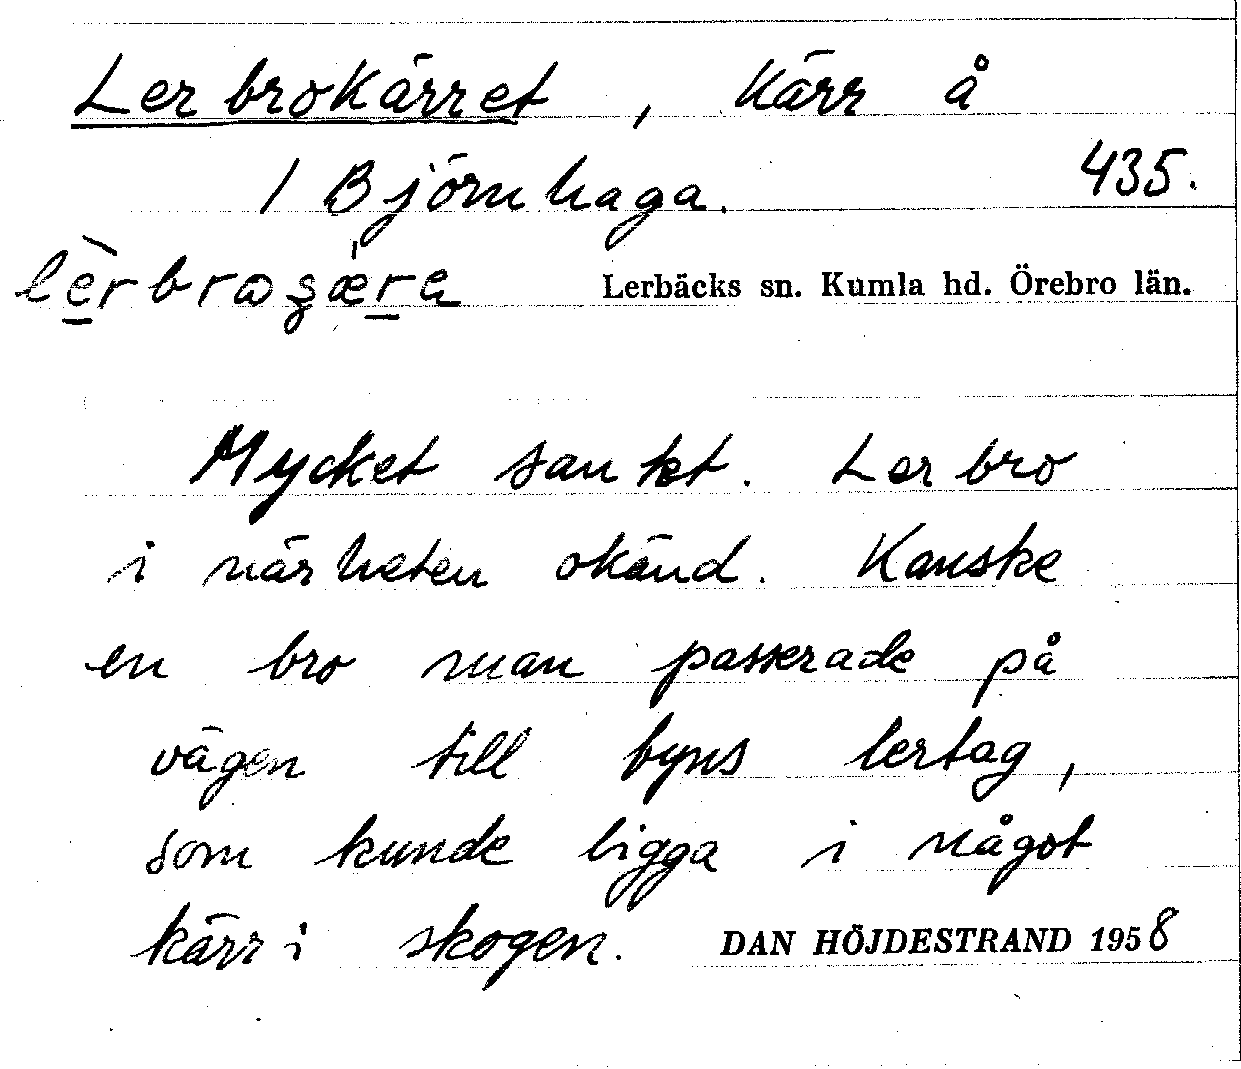 Lerbrokärret, kärr å
1 Björnhaga. 435.
Lerbäcks sn. Kumla hd. Örebro län.
Mycket sankt. Lerbro
i närheten okänd. Kanske
en bro man passerade på
vägen till byns lertag,
som kunde ligga i något
kärr i skogen. DAN HÖJDESTRAND 1958